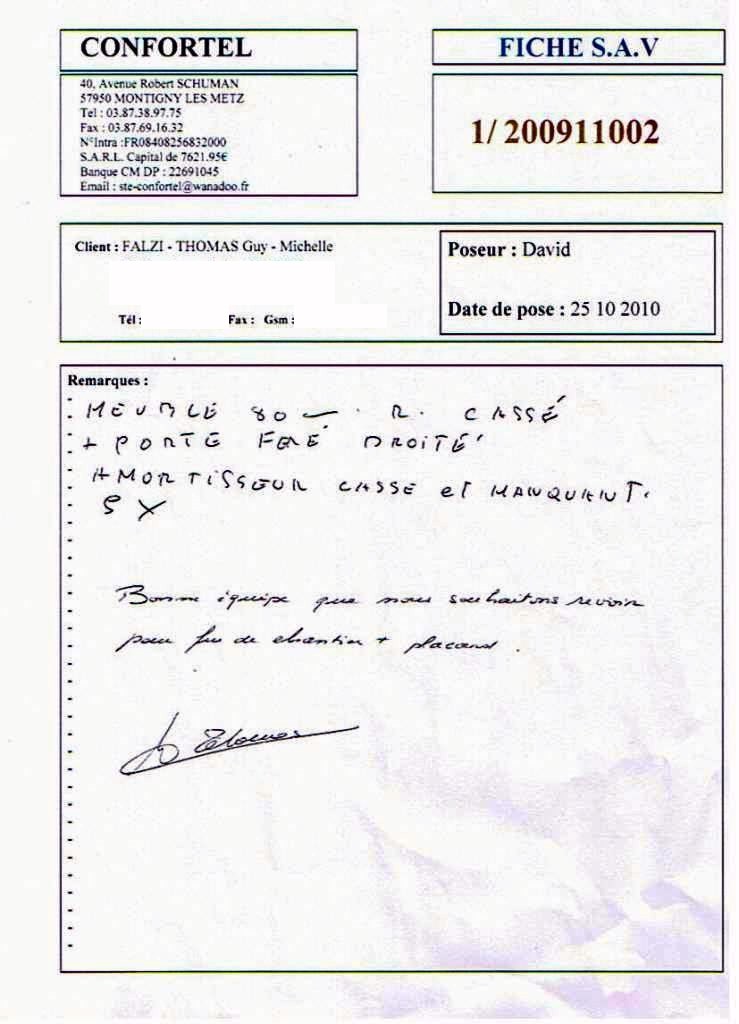 CONFORTEL
FICHE S.A.V
40, Avenue Robert SCHUMAN
57950 MONTIGNY LES METZ
Tel : 03.87.38.97.75
Fax : 03.87.69.16.32
N°Intra :FR08408256832000
S.A.R.L. Capital de 7621.95€
Banque CM DP : 22691045
Email : ste-confortel@wanadoo.fr
1/ 200911002
Client : FALZI - THOMAS Guy - Michelle
Tél : Fax : Gsm :
Poseur : David
Date de pose : 25 10 2010
Remarques :
MEUBLE 80 R. CASSÉ
+ PORTE DROITE
AMORTISSEUR CASSE et MANQUANT.
5 X
Bonne équipe que nous souhaitons revoir
pour fin de chantier + placard.
Thomas